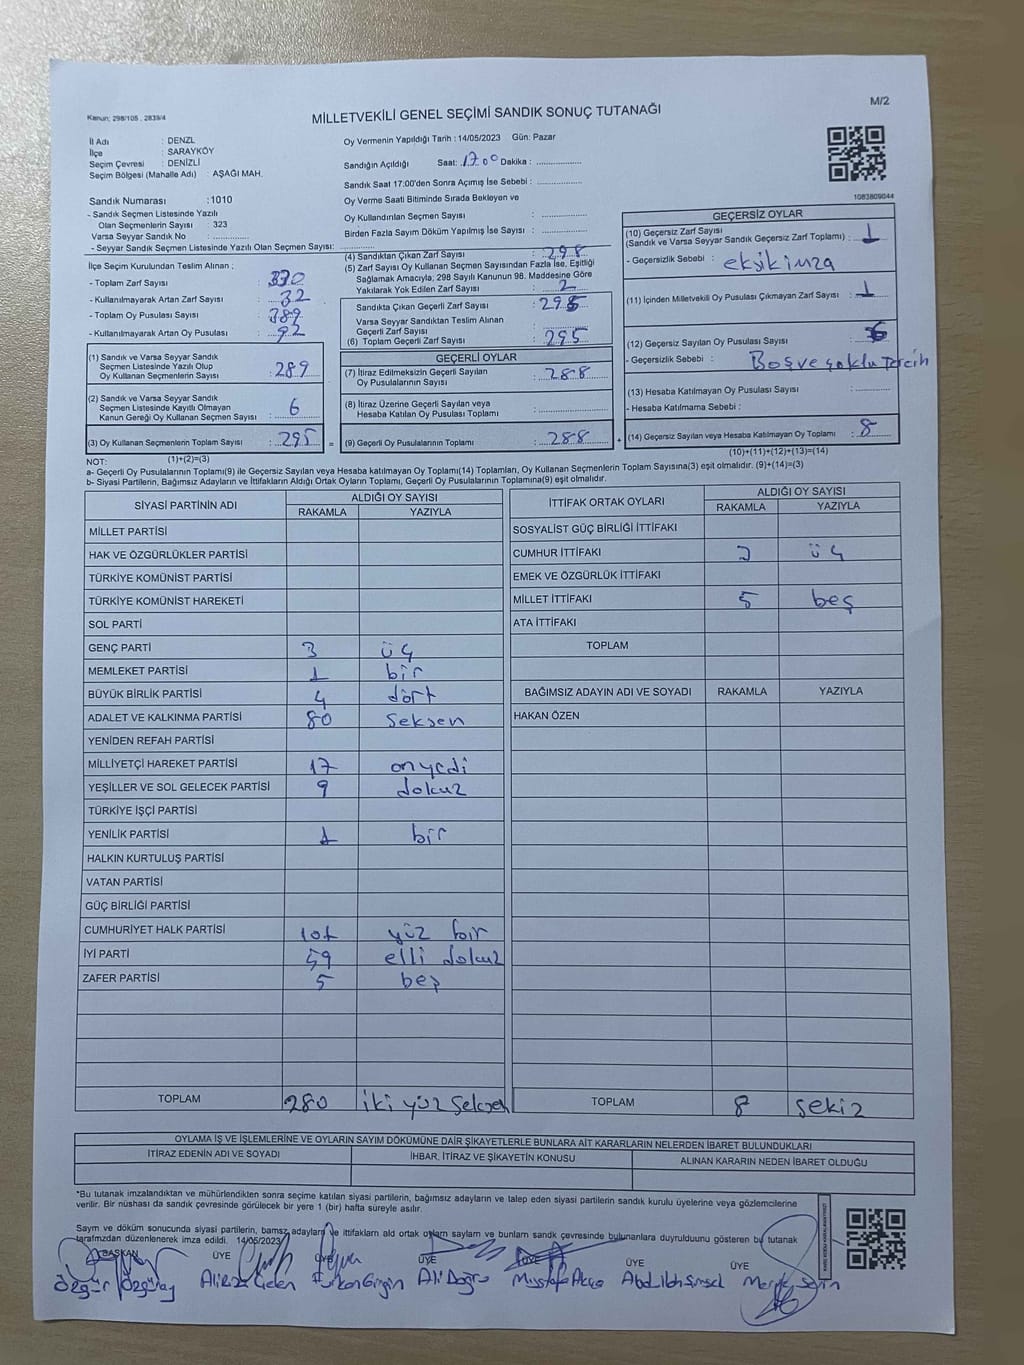 Kanun: 298/105 , 2839/4
MİLLETVEKİLİ GENEL SEÇİMİ SANDIK SONUÇ TUTANAĞI
M/2
İl Adı : DENZL
İlçe : SARAYKÖY
Seçim Çevresi : DENİZLİ
Seçim Bölgesi (Mahalle Adı) : AŞAĞI MAH.
Oy Vermenin Yapıldığı Tarih : 14/05/2023 Gün: Pazar
Sandığın Açıldığı Saat: 17 00 Dakika :
Sandık Saat 17:00'den Sonra Açımış İse Sebebi :
Oy Verme Saati Bitiminde Sırada Bekleyen ve
Oy Kullandırılan Seçmen Sayısı :
Birden Fazla Sayım Döküm Yapılmış İse Sayısı :
1083809044
Sandık Numarası : 1010
- Sandık Seçmen Listesinde Yazılı
Olan Seçmenlerin Sayısı : 323
Varsa Seyyar Sandık No :
- Seyyar Sandık Seçmen Listesinde Yazılı Olan Seçmen Sayısı:
İlçe Seçim Kurulundan Teslim Alınan ;
- Toplam Zarf Sayısı : 330
- Kullanılmayarak Artan Zarf Sayısı : 32
- Toplam Oy Pusulası : 389
- Kullanılmayarak Artan Oy Pusulası : 92
(1) Sandık ve Varsa Seyyar Sandık
Seçmen Listesinde Yazılı Olup
Oy Kullanan Seçmenlerin Sayısı : 289
(2) Sandık ve Varsa Seyyar Sandık
Seçmen Listesinde Kayıtlı Olmayan
Kanun Gereği Oy Kullanan Seçmen Sayısı : 6
(3) Oy Kullanan Seçmenlerin Toplam Sayısı : 295 =
(1)+(2)=(3)
(4) Sandıktan Çıkan Zarf Sayısı : 298
(5) Zarf Sayısı Oy Kullanan Seçmen Sayısından Fazla İse, Eşitliği
Sağlamak Amacıyla; 298 Sayılı Kanunun 98. Maddesine Göre
Yakılarak Yok Edilen Zarf Sayısı : 2
Sandıkta Çıkan Geçerli Zarf Sayısı : 295
Varsa Seyyar Sandıktan Teslim Alınan
Geçerli Zarf Sayısı
(6) Toplam Geçerli Zarf Sayısı : 295
GEÇERLİ OYLAR
(7) İtiraz Edilmeksizin Geçerli Sayılan
Oy Pusulalarının Sayısı : 288
(8) İtiraz Üzerine Geçerli Sayılan veya
Hesaba Katılan Oy Pusulası Toplamı :
(9) Geçerli Oy Pusulalarının Toplamı : 288 +
GEÇERSİZ OYLAR
(10) Geçersiz Zarf Sayısı
(Sandık ve Varsa Seyyar Sandık Geçersiz Zarf Toplamı) : 1
- Geçersizlik Sebebi : eksik imza
(11) İçinden Milletvekili Oy Pusulası Çıkmayan Zarf Sayısı : 1
(12) Geçersiz Sayılan Oy Pusulası Sayısı : 6
- Geçersizlik Sebebi : Boş ve çoklu tercih
(13) Hesaba Katılmayan Oy Pusulası Sayısı :
- Hesaba Katılmama Sebebi :
(14) Geçersiz Sayılan veya Hesaba Katılmayan Oy Toplamı : 8
(10)+(11)+(12)+(13)=(14)
NOT:
a- Geçerli Oy Pusulalarının Toplamı(9) ile Geçersiz Sayılan veya Hesaba katılmayan Oy Toplamı(14) Toplamları, Oy Kullanan Seçmenlerin Toplam Sayısına(3) eşit olmalıdır. (9)+(14)=(3)
b- Siyasi Partilerin, Bağımsız Adayların ve İttifakların Aldığı Ortak Oyların Toplamı, Geçerli Oy Pusulalarının Toplamına(9) eşit olmalıdır.
SİYASİ PARTİNİN ADI
ALDIĞI OY SAYISI
RAKAMLA YAZIYLA
MİLLET PARTİSİ
HAK VE ÖZGÜRLÜKLER PARTİSİ
TÜRKİYE KOMÜNİST PARTİSİ
TÜRKİYE KOMÜNİST HAREKETİ
SOL PARTİ
GENÇ PARTİ 3 üç
MEMLEKET PARTİSİ 1 bir
BÜYÜK BİRLİK PARTİSİ 4 dört
ADALET VE KALKINMA PARTİSİ 80 seksen
YENİDEN REFAH PARTİSİ
MİLLİYETÇİ HAREKET PARTİSİ 17 onyedi
YEŞİLLER VE SOL GELECEK PARTİSİ 9 dokuz
TÜRKİYE İŞÇİ PARTİSİ
YENİLİK PARTİSİ 1 bir
HALKIN KURTULUŞ PARTİSİ
VATAN PARTİSİ
GÜÇ BİRLİĞİ PARTİSİ
CUMHURİYET HALK PARTİSİ 101 yüz bir
İYİ PARTİ 59 elli dokuz
ZAFER PARTİSİ 5 beş
TOPLAM 280 iki yüz Seksen
İTTİFAK ORTAK OYLARI
ALDIĞI OY SAYISI
RAKAMLA YAZIYLA
SOSYALİST GÜÇ BİRLİĞİ İTTİFAKI
CUMHUR İTTİFAKI 3 üç
EMEK VE ÖZGÜRLÜK İTTİFAKI
MİLLET İTTİFAKI 5 beş
ATA İTTİFAKI
TOPLAM
BAĞIMSIZ ADAYIN ADI VE SOYADI RAKAMLA YAZIYLA
HAKAN ÖZEN
TOPLAM 8 sekiz
OYLAMA İŞ VE İŞLEMLERİNE VE OYLARIN SAYIM DÖKÜMÜNE DAİR ŞİKAYETLERLE BUNLARA AİT KARARLARIN NELERDEN İBARET BULUNDUKLARI
İTİRAZ EDENİN ADI VE SOYADI İHBAR, İTİRAZ VE ŞİKAYETİN KONUSU ALINAN KARARIN NEDEN İBARET OLDUĞU
*Bu tutanak imzalandıktan ve mühürlendikten sonra seçime katılan siyasi partilerin, bağımsız adayların ve talep eden siyasi partilerin sandık kurulu üyelerine veya gözlemcilerine
verilir. Bir nüshası da sandık çevresinde görülecek bir yere 1 (bir) hafta süreyle asılır.
Sayım ve döküm sonucunda siyasi partilerin, bamsz adayları ve ittifakların ald ortak oyların saylam ve bunlam sandık çevresinde bulunanlara duyrulduunu gösteren bu tutanak
tarafmzdan düzenlenerek imza edildi. 14/05/2023
BAŞKAN ÜYE ÜYE ÜYE ÜYE ÜYE ÜYE
Özgür Özgüray Furkan Girgin Ali Doğru Mustafa Akça